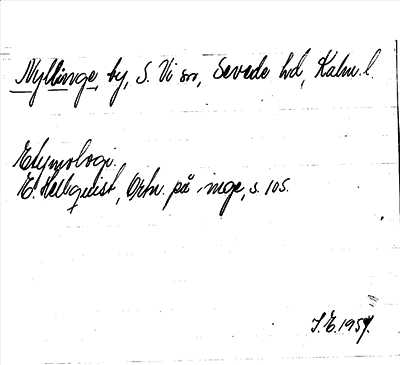 Nyllinge, by, S. Vi sn, Sevede hd, Kalm. l.
Etymologi.
E. Hellquist, Ortn. på -inge, s. 105.
J. E. 1957.